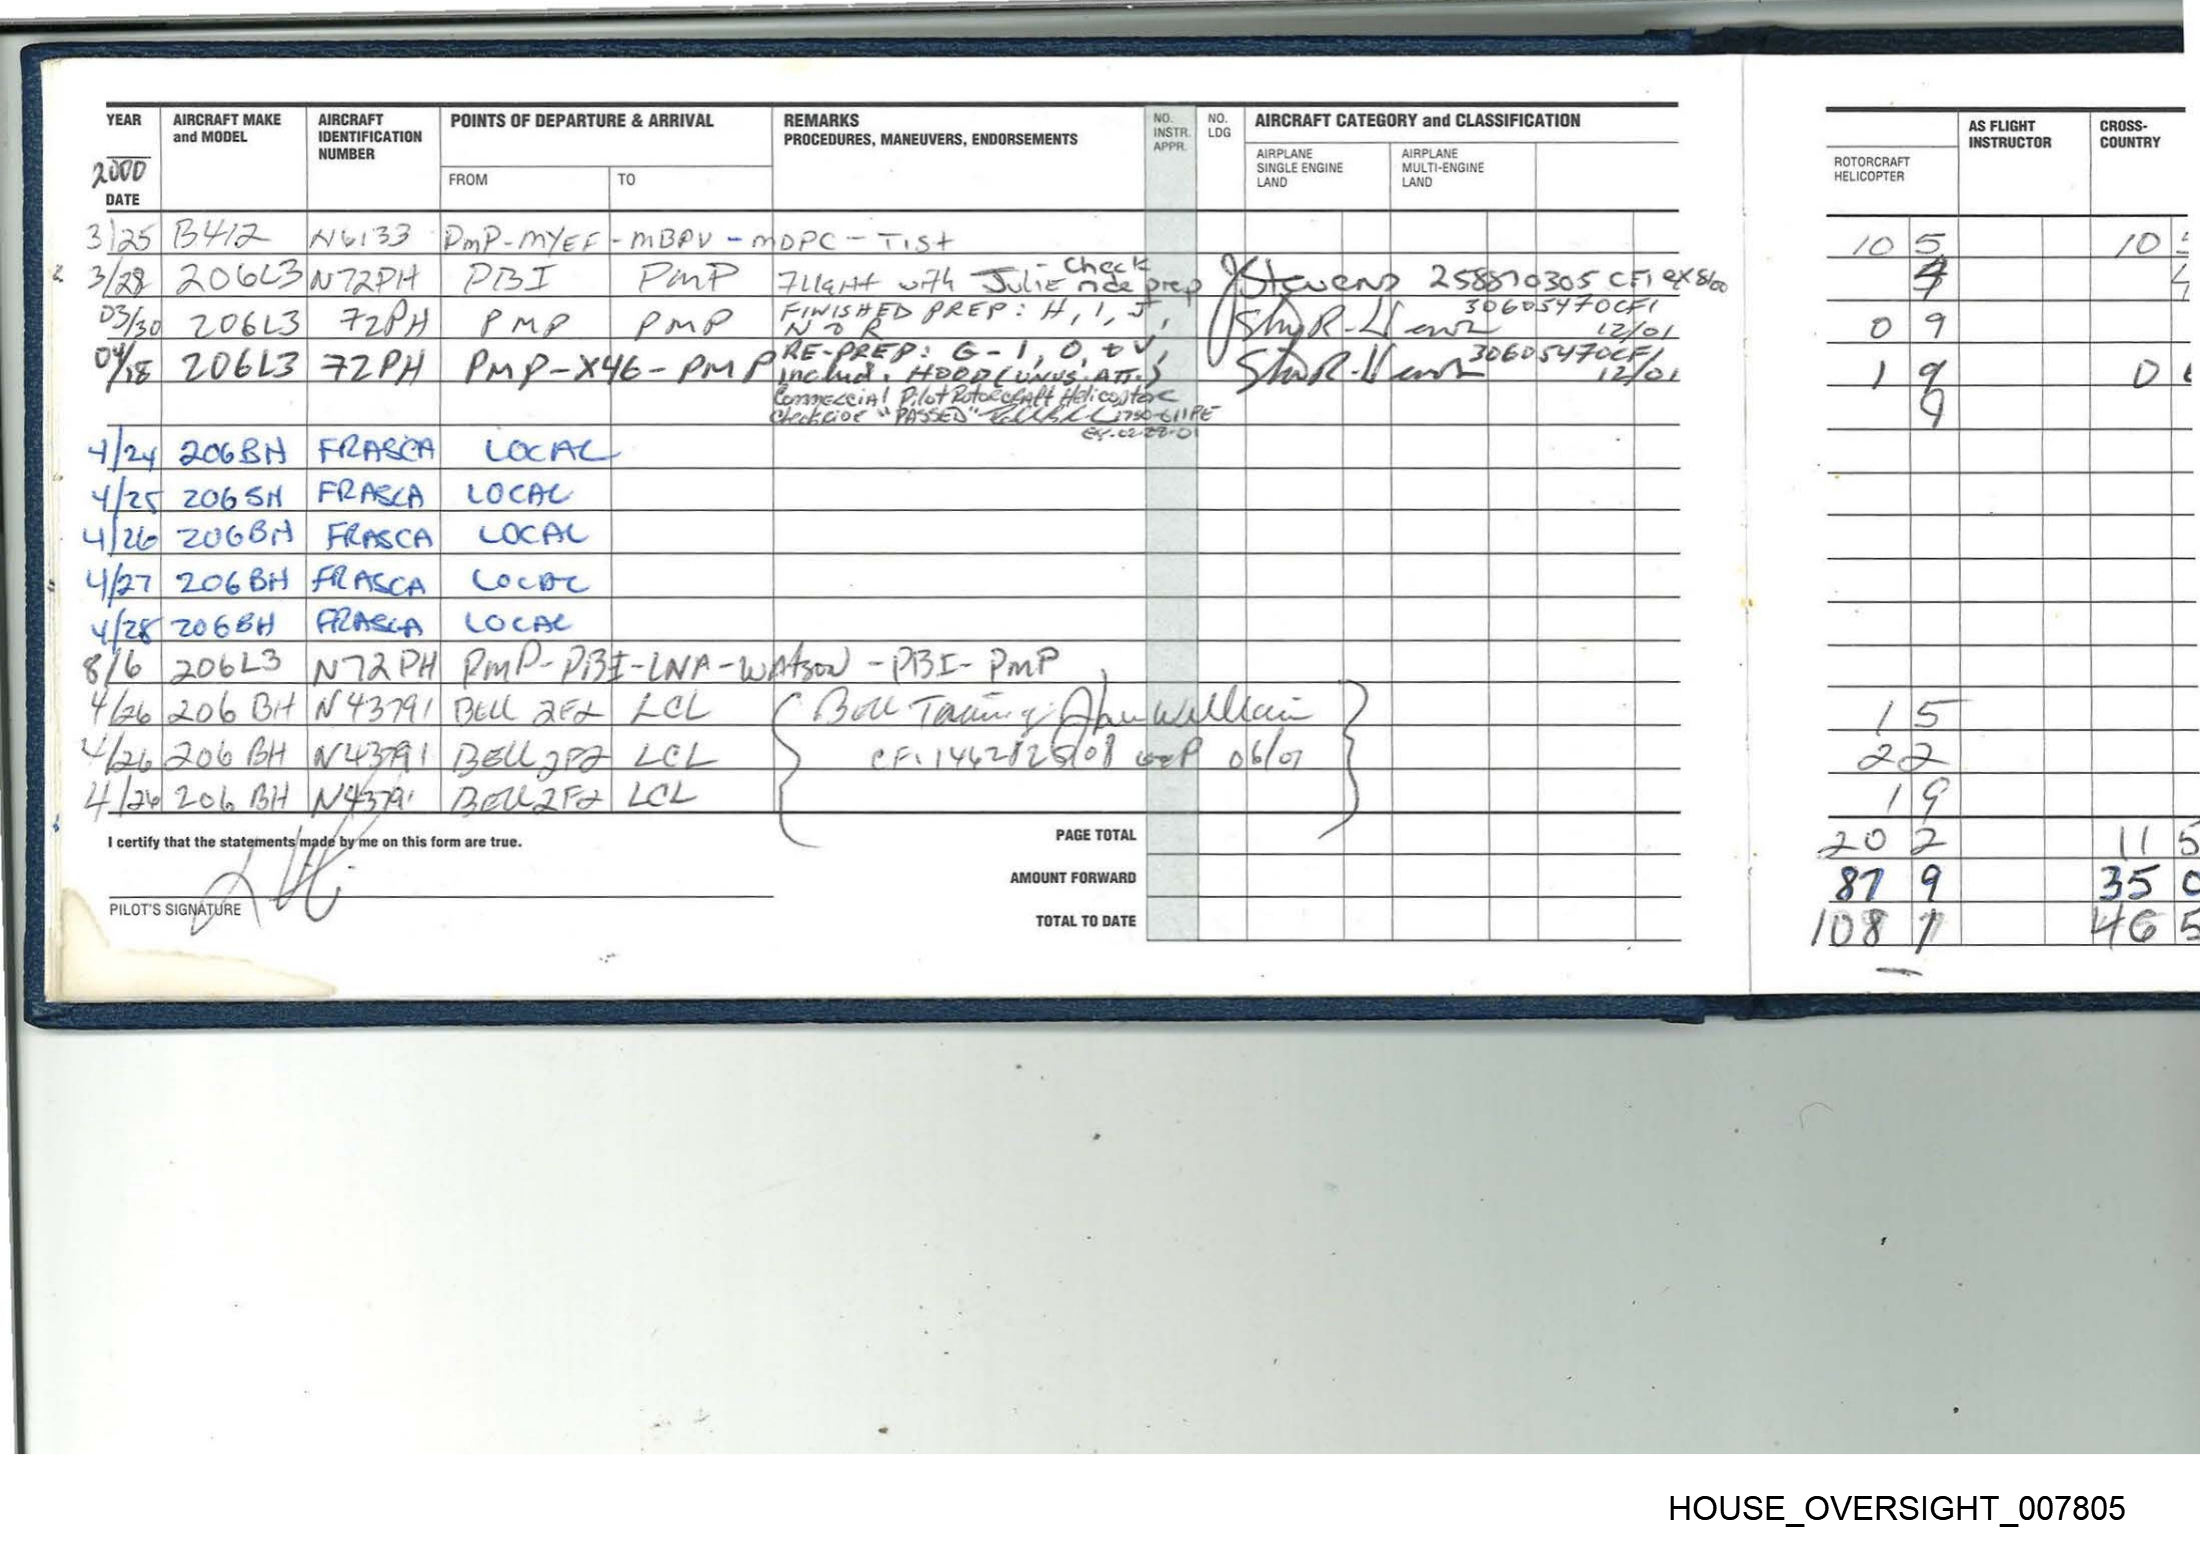 YEAR AIRCRAFT MAKE AIRCRAFT POINTS OF DEPARTURE & ARRIVAL REMARKS NO. NO. AIRCRAFT CATEGORY and CLASSIFICATION AS FLIGHT CROSS-
and MODEL IDENTIFICATION PROCEDURES, MANEUVERS, ENDORSEMENTS INSTR. LDG INSTRUCTOR COUNTRY
NUMBER APPR. AIRPLANE AIRPLANE ROTORCRAFT
2000 SINGLE ENGINE MULTI-ENGINE HELICOPTER
DATE FROM TO LAND LAND
3/25 B412 N6133 PMP-MYEF-MBPV-MDPC-TIST 10 5 10
3/28 206L3 N72PH PBI PMP Flight with Julie - Check ride prep JStevens 258870305 CFI ex 8/00 4
03/30 206L3 72PH PMP PMP FINISHED PREP: H, I, J, 30605470CFI 0 9
N O R 12/01
04/18 206L3 72PH PMP-X46-PMP RE-PREP: G-I, O, + V, 30605470CFI 1 9 0
includ. HOOD (UNUS. ATT.) 12/01
Commercial Pilot Rotorcraft Helicopter 9
Checkride "PASSED"
4/24 206BH FRASCA LOCAL
4/25 206 FRASCA LOCAL
4/26 206BH FRASCA LOCAL
4/27 206BH FRASCA LOCAL
4/28 206BH FRASCA LOCAL
8/6 206L3 N72PH PMP-PBI-LNA-WATSON-PBI-PMP
4/26 206 BH N43791 BELL 2F2 LCL Bell Training 1 5
4/26 206 BH N43791 BELL 2F2 LCL 06/01 2 2
4/26 206 BH N43791 BELL 2F2 LCL 1 9
I certify that the statements made by me on this form are true. PAGE TOTAL 20 2 11 5
AMOUNT FORWARD 87 9 35 0
PILOT'S SIGNATURE TOTAL TO DATE 108 1 46 5
HOUSE_OVERSIGHT_007805